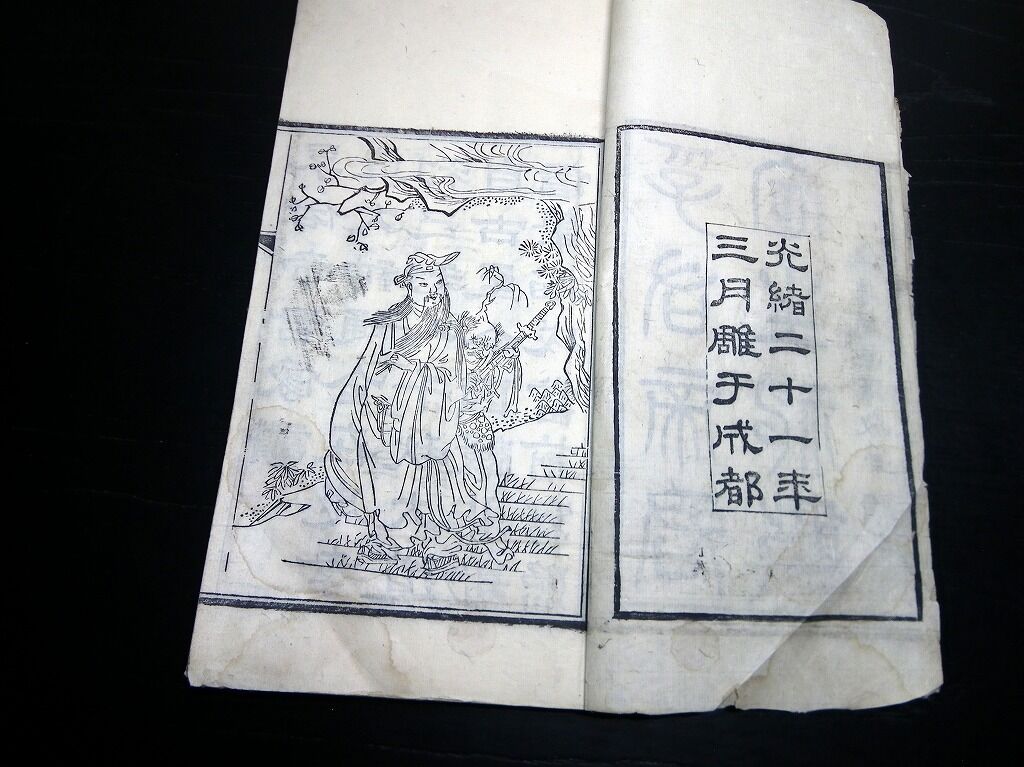 光緒二十一年
三月雕于成都